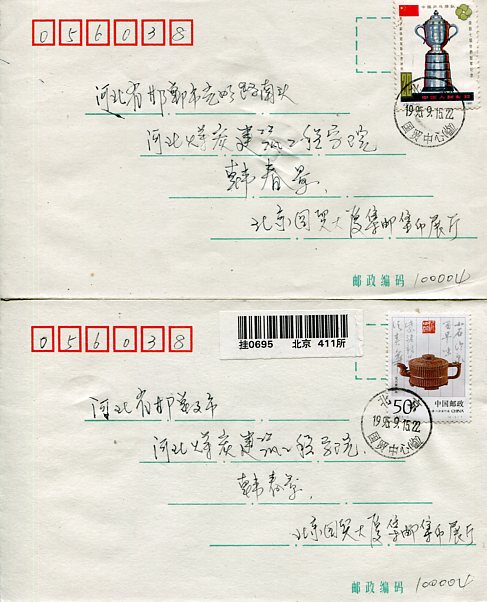 056038
中国人民邮政
1995.9.15.22
国贸中心(営)
河北省邯郸市光明路南头
河北煤炭建筑工程学院
韩春景
北京国贸大厦集邮集币展厅
邮政编码 100004
056038
挂0695 北京 411所
50分
中国邮政
CHINA
北京
1995.9.15.22
国贸中心(営)
河北省邯郸市
河北煤炭建筑工程学院
韩春景
北京国贸大厦集邮集币展厅
邮政编码 100004